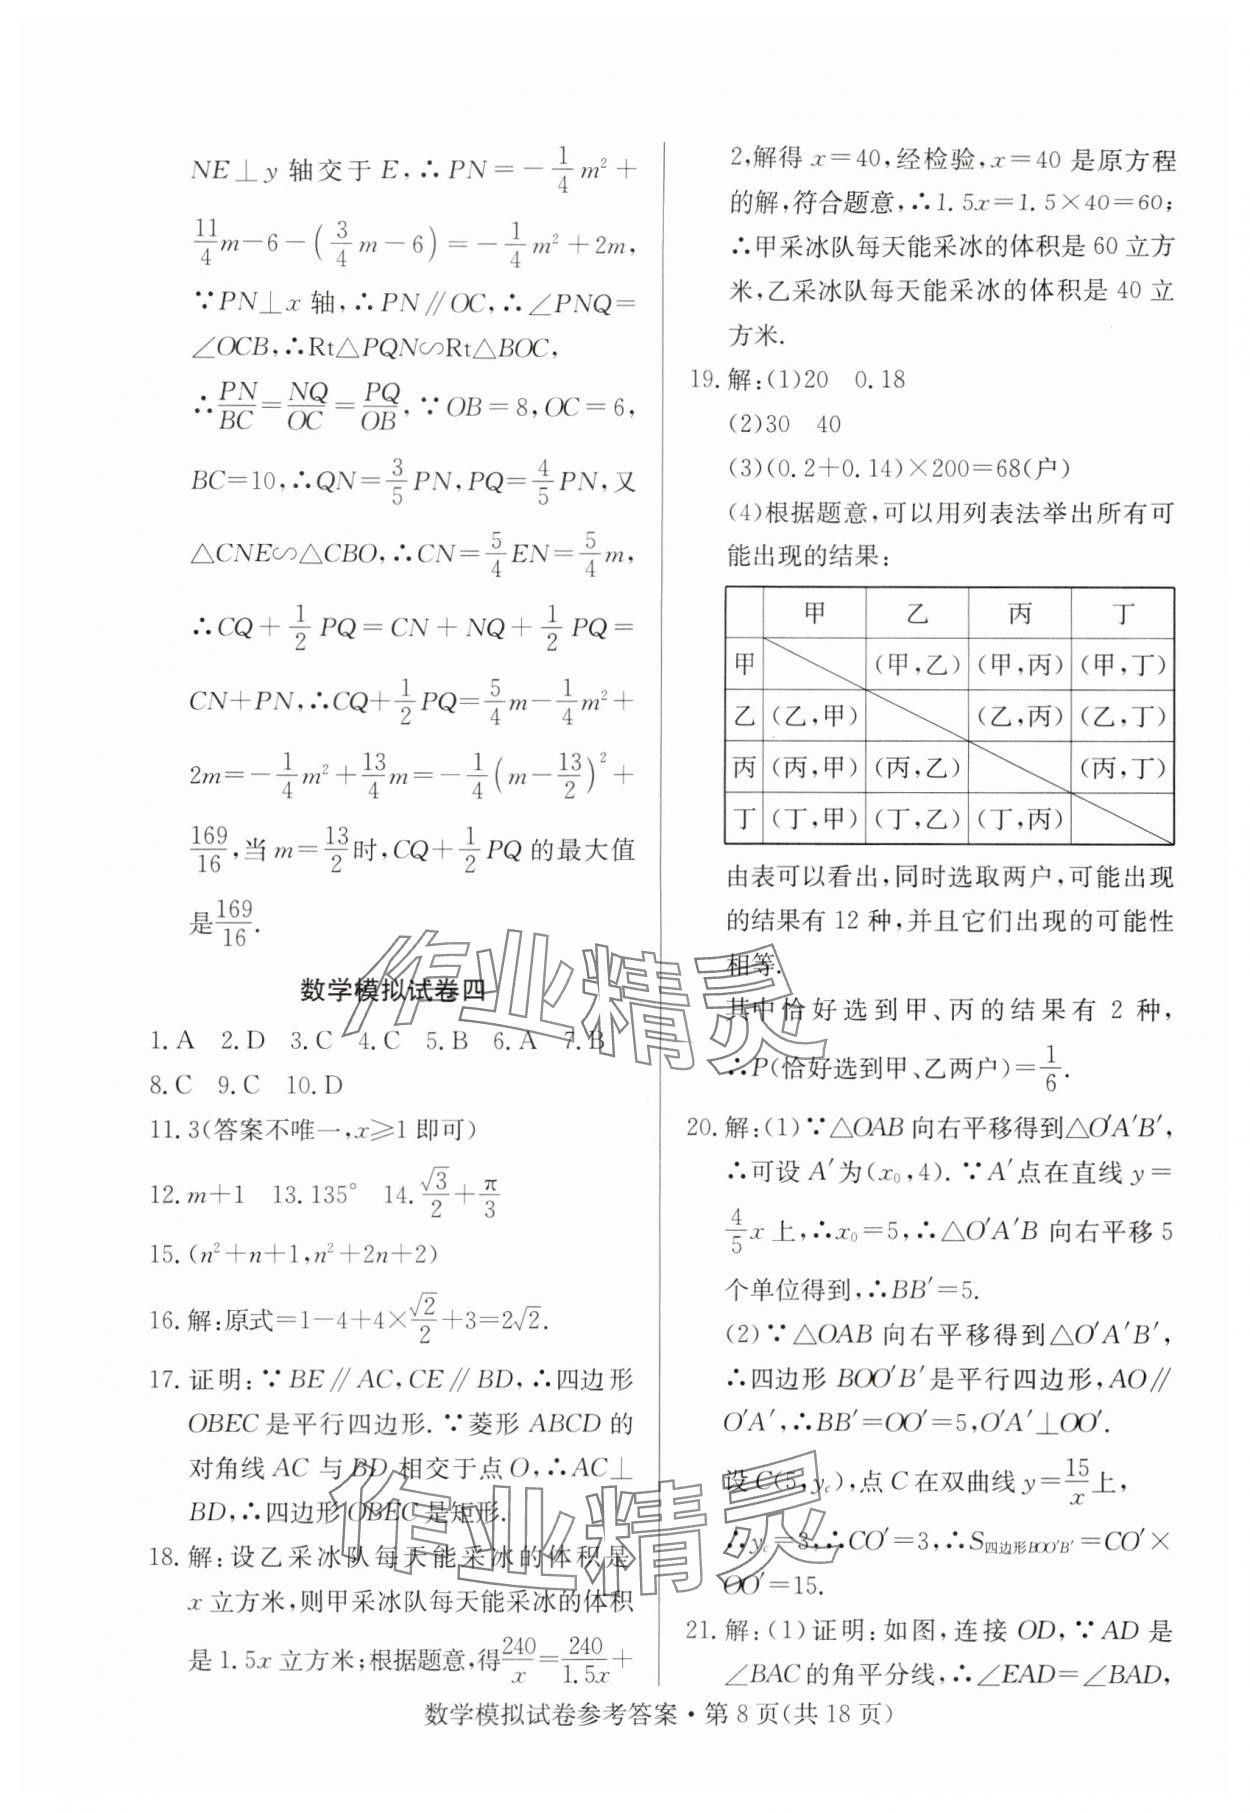 NE⊥y 轴交于 E,∴PN=-1/4 m²+
11/4 m-6-(3/4 m-6)=-1/4 m²+2m,
∵PN⊥x 轴,∴PN∥OC,∴∠PNQ=
∠OCB,∴Rt△PQN∽Rt△BOC,
∴PN/BC=NQ/OC=PQ/OB,∵OB=8,OC=6,
BC=10,∴QN=3/5 PN,PQ=4/5 PN,又
△CNE∽△CBO,∴CN=5/4 EN=5/4 m,
∴CQ+1/2 PQ=CN+NQ+1/2 PQ=
CN+PN,∴CQ+1/2 PQ=5/4 m-1/4 m²+
2m=-1/4 m²+13/4 m=-1/4(m-13/2)²+
169/16,当 m=13/2 时,CQ+1/2 PQ 的最大值
是 169/16.
数学模拟试卷四
1.A 2.D 3.C 4.C 5.B 6.A 7.B
8.C 9.C 10.D
11.3(答案不唯一,x≥1 即可)
12.m+1 13.135° 14.√3/2+π/3
15.(n²+n+1,n²+2n+2)
16.解:原式=1-4+4×√2/2+3=2√2.
17.证明:∵BE∥AC,CE∥BD,∴四边形
OBEC 是平行四边形.∵菱形 ABCD 的
对角线 AC 与 BD 相交于点 O,∴AC⊥
BD,∴四边形 OBEC 是矩形.
18.解:设乙采冰队每天能采冰的体积是
x 立方米,则甲采冰队每天能采冰的体积
是 1.5x 立方米;根据题意,得 240/x=240/1.5x+
2,解得 x=40,经检验,x=40 是原方程
的解,符合题意,∴1.5x=1.5×40=60;
∴甲采冰队每天能采冰的体积是 60 立方
米,乙采冰队每天能采冰的体积是 40 立
方米.
19.解:(1)20 0.18
(2)30 40
(3)(0.2+0.14)×200=68(户)
(4)根据题意,可以用列表法举出所有可
能出现的结果:
甲 乙 丙 丁
甲 (甲,乙) (甲,丙) (甲,丁)
乙 (乙,甲) (乙,丙) (乙,丁)
丙 (丙,甲) (丙,乙) (丙,丁)
丁 (丁,甲) (丁,乙) (丁,丙)
由表可以看出,同时选取两户,可能出现
的结果有 12 种,并且它们出现的可能性
相等.
其中恰好选到甲、丙的结果有 2 种,
∴P(恰好选到甲、乙两户)=1/6.
20.解:(1)∵△OAB 向右平移得到△O′A′B′,
∴可设 A′为(x₀,4).∵A′点在直线 y=
4/5 x 上,∴x₀=5,∴△O′A′B 向右平移 5
个单位得到,∴BB′=5.
(2)∵△OAB 向右平移得到△O′A′B′,
∴四边形 BOO′B′是平行四边形,AO∥
O′A′,∴BB′=OO′=5,O′A′⊥OO′.
设 C(5,y_c),点 C 在双曲线 y=15/x 上,
∴y_c=3,∴CO′=3,∴S四边形BOO′B′=CO′×
OO′=15.
21.解:(1)证明:如图,连接 OD,∵AD 是
∠BAC 的角平分线,∴∠EAD=∠BAD,
数学模拟试卷参考答案·第 8 页(共 18 页)
作业精灵
作业精灵